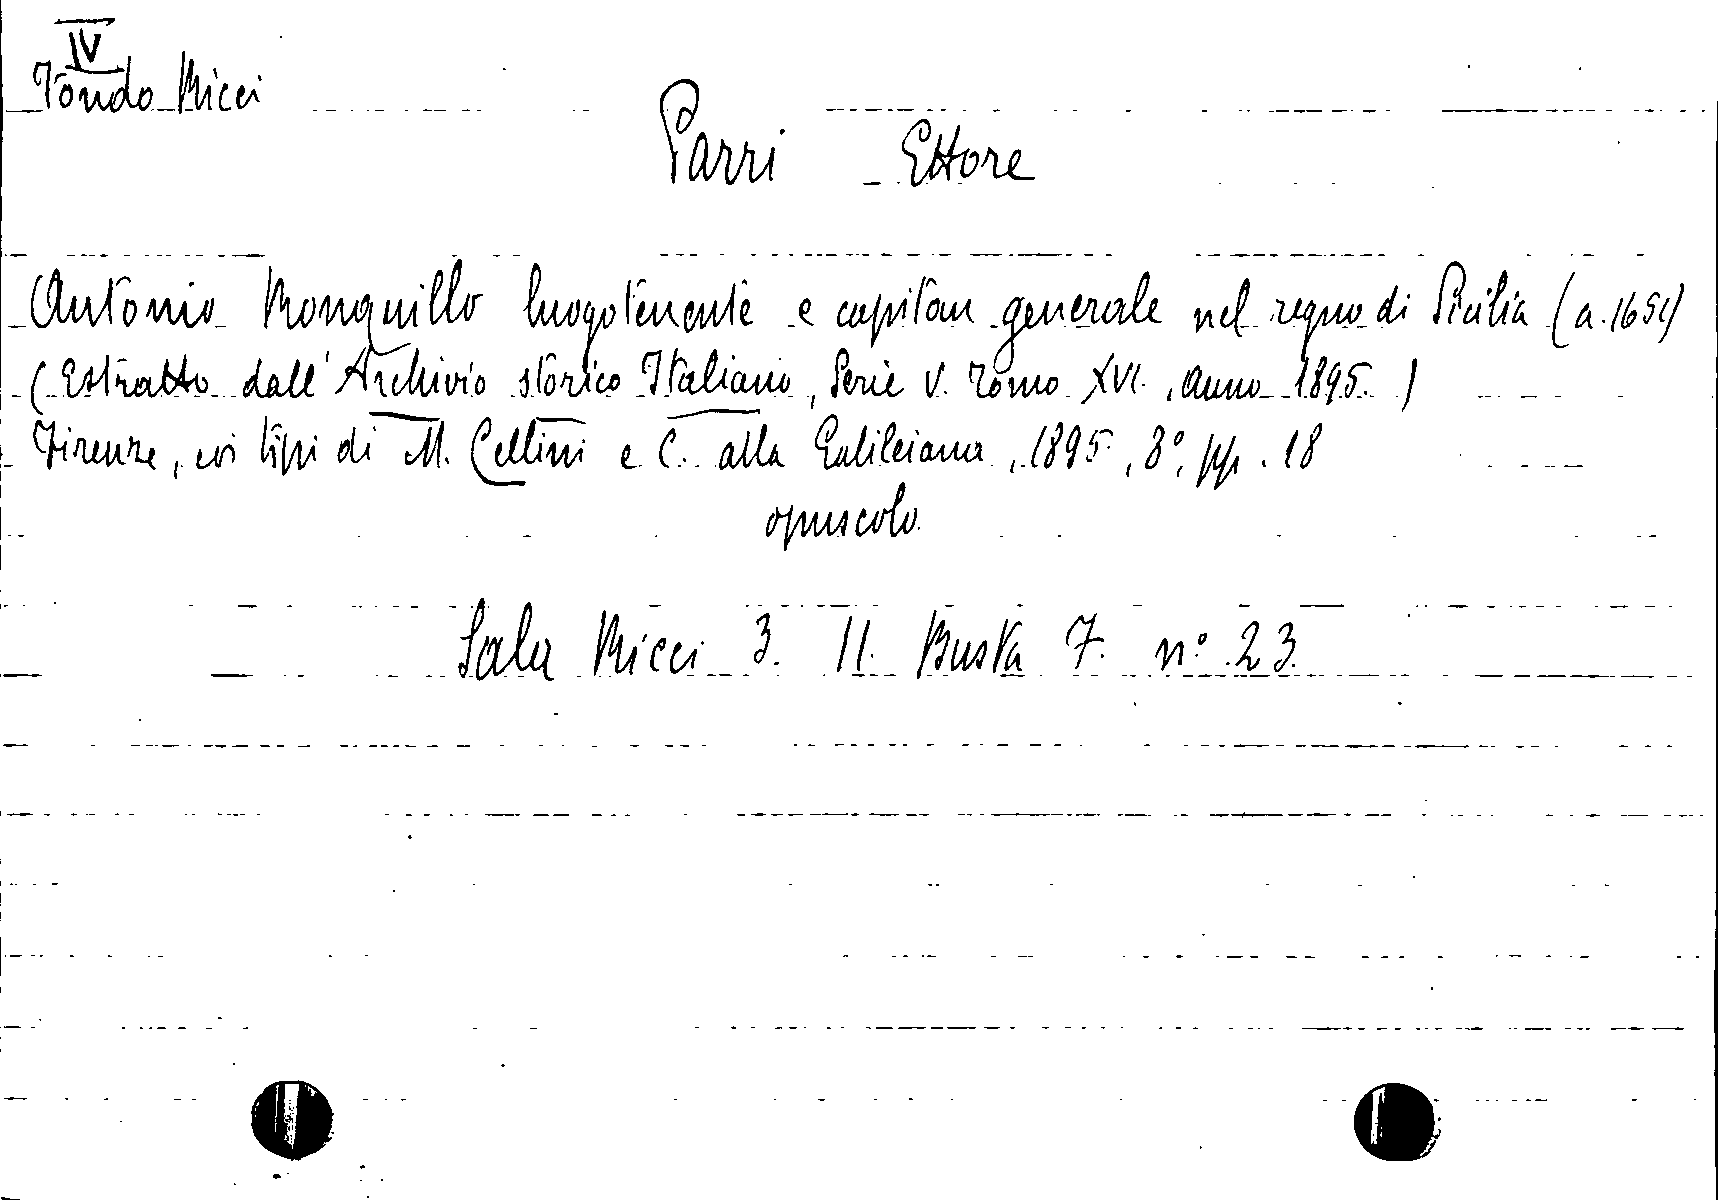 IV
Fondo Ricci
Parri Ettore
Antonio Ronquillo luogotenente e capitan generale nel regno di Sicilia (a. 1651)
(Estratto dall' Archivio storico Italiano, Serie V. Tomo XVI. anno 1895.)
Firenze, coi tipi di M. Cellini e C. alla Galileiana, 1895, 8°, pp. 18
opuscolo
Sala Ricci 3. II. Busta 7. n° 23.